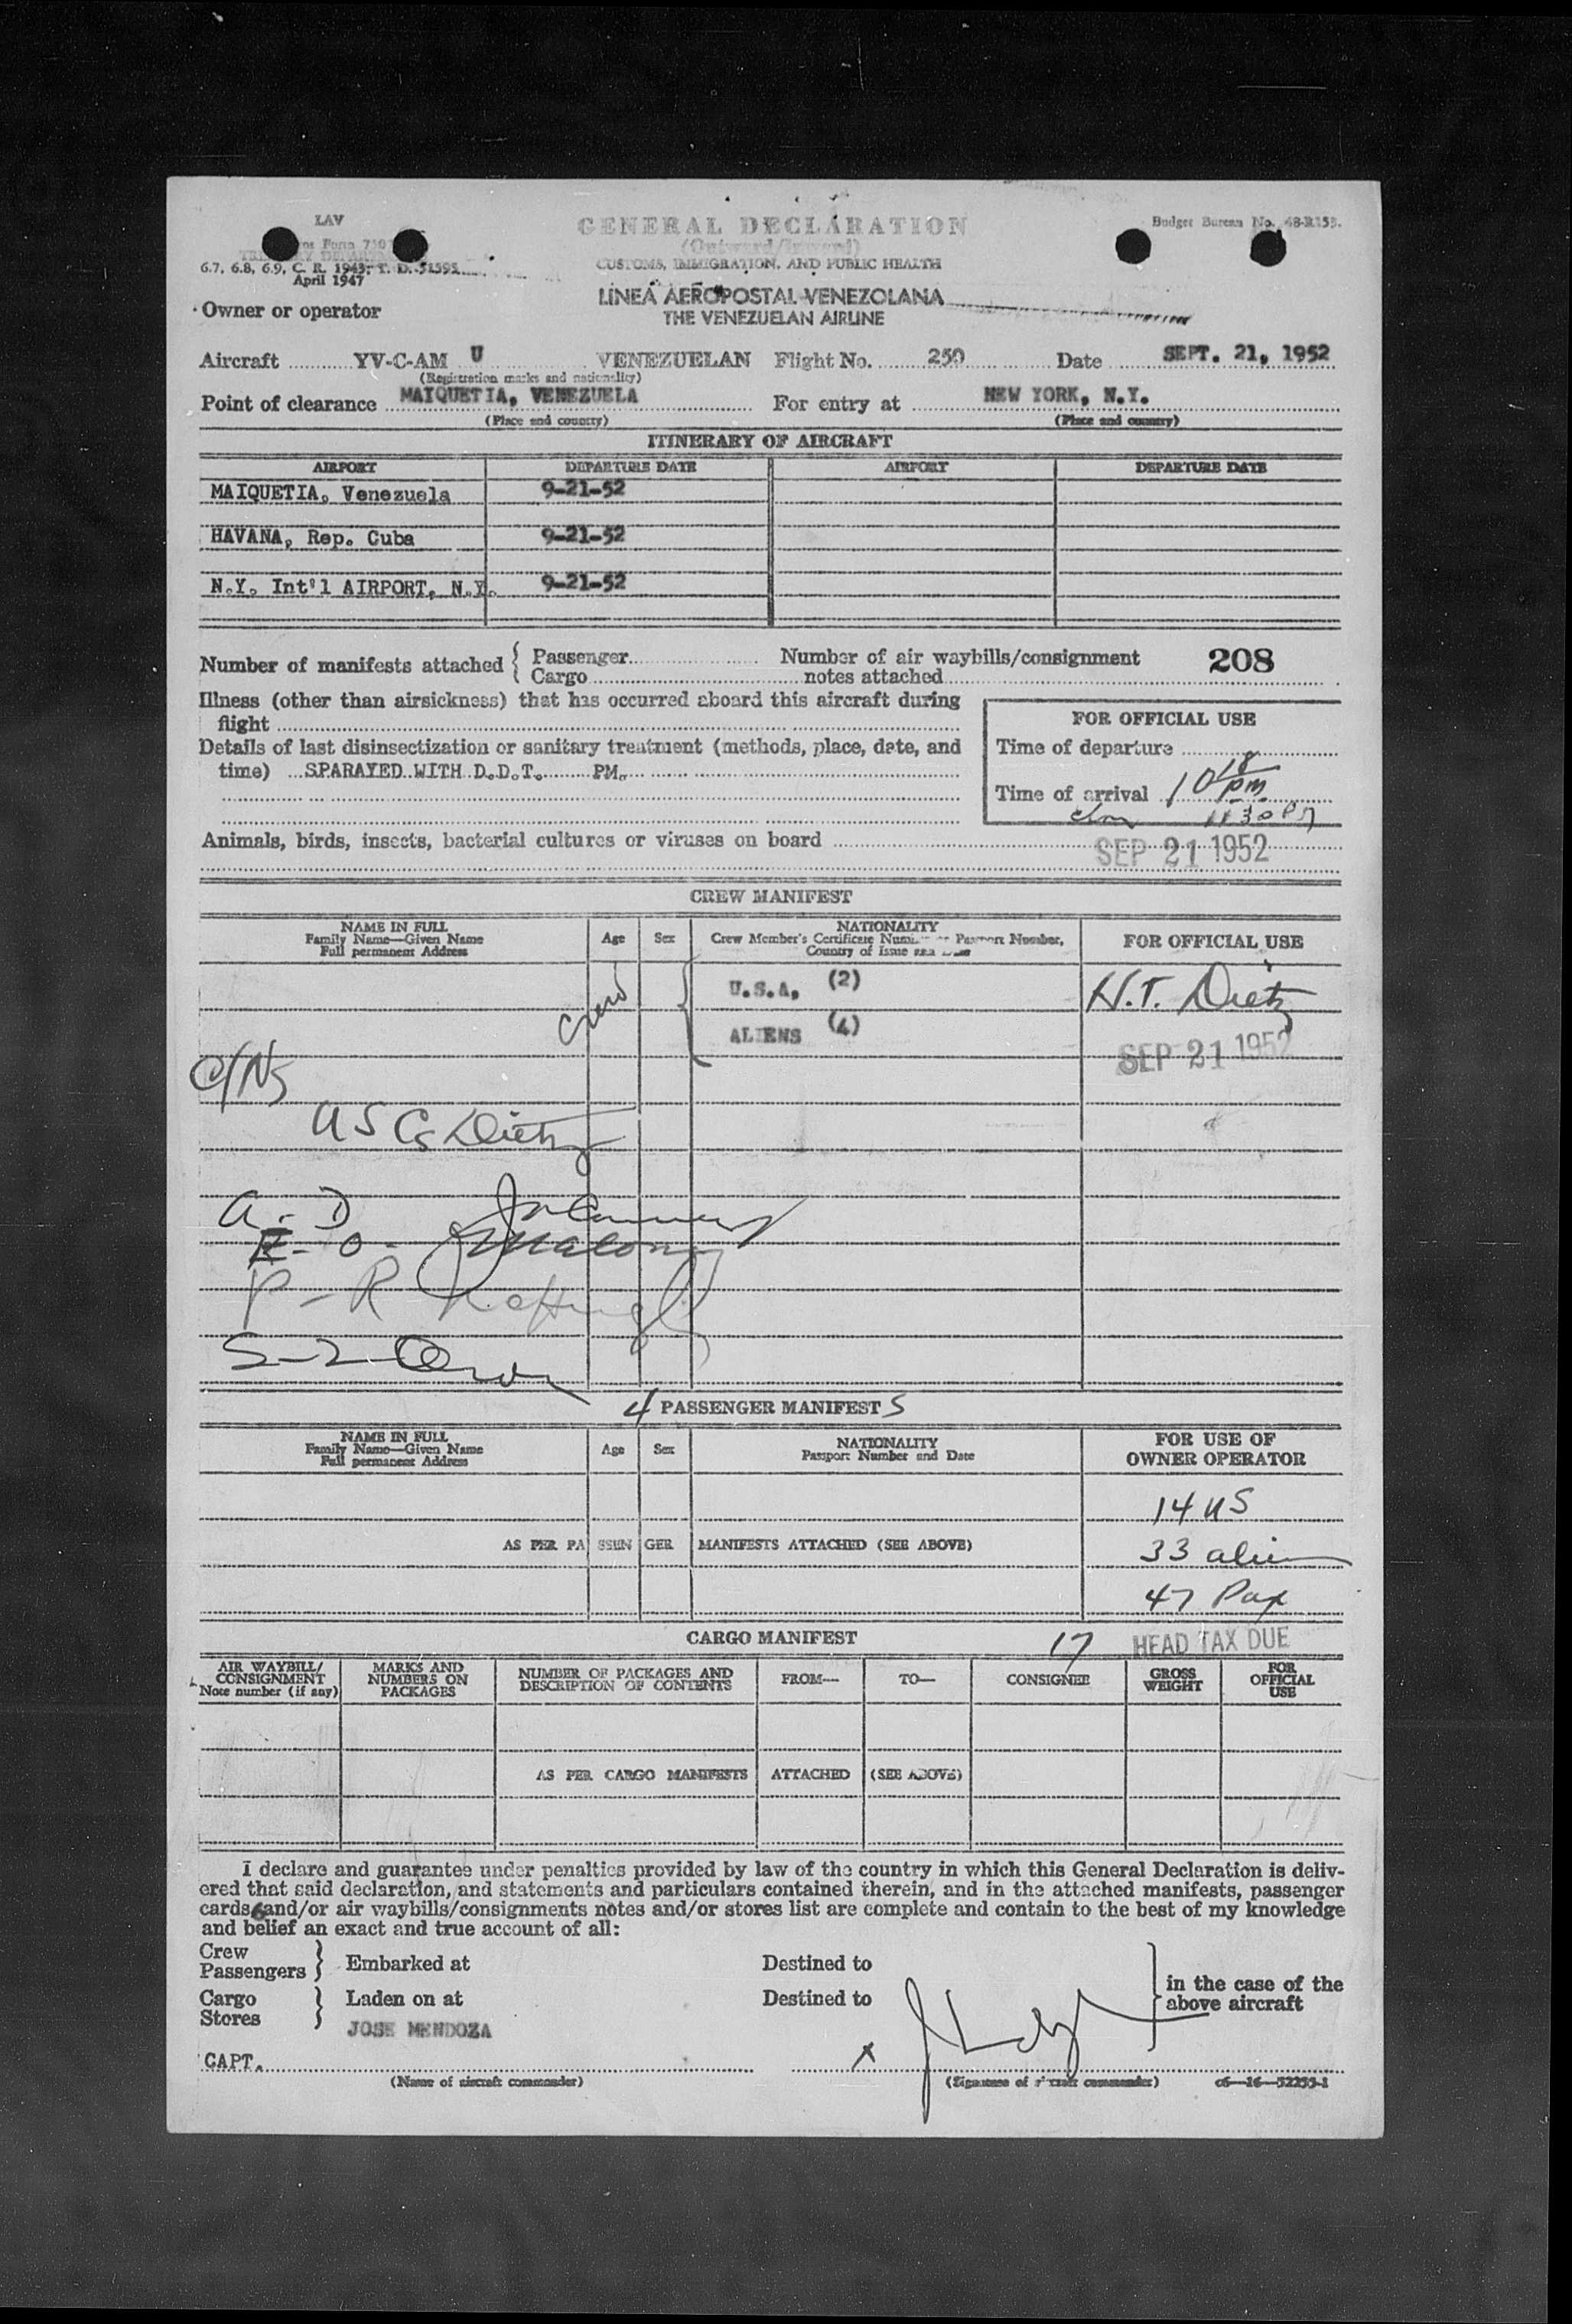 LAV
GENERAL DECLARATION
Budget Bureau No. 48-R155.
Form 7507
(Outward/Inward)
TREASURY DEPARTMENT
CUSTOMS, IMMIGRATION, AND PUBLIC HEALTH
6.7, 6.8, 6.9, C. R. 1943; T. D. 51595
April 1947
LINEA AEROPOSTAL VENEZOLANA
Owner or operator
THE VENEZUELAN AIRLINE
Aircraft YV-C-AM U VENEZUELAN Flight No. 250 Date SEPT. 21, 1952
(Registration marks and nationality)
Point of clearance MAIQUETIA, VENEZUELA For entry at NEW YORK, N.Y.
(Place and country) (Place and country)
ITINERARY OF AIRCRAFT
AIRPORT DEPARTURE DATE AIRPORT DEPARTURE DATE
MAIQUETIA, Venezuela 9-21-52
HAVANA, Rep. Cuba 9-21-52
N.Y. Int'l AIRPORT, N.Y. 9-21-52
Number of manifests attached { Passenger Number of air waybills/consignment 208
Cargo notes attached
Illness (other than airsickness) that has occurred aboard this aircraft during
flight
FOR OFFICIAL USE
Details of last disinsectization or sanitary treatment (methods, place, date, and
time) SPARAYED WITH D.D.T. PM.
Time of departure
Time of arrival 10 18 pm
11 30 PM
Animals, birds, insects, bacterial cultures or viruses on board
SEP 21 1952
CREW MANIFEST
NAME IN FULL
Family Name—Given Name
Full permanent Address
Age Sex
NATIONALITY
Crew Member's Certificate Number or Passport Number,
Country of Issue and Date
FOR OFFICIAL USE
Crew
U.S.A, (2)
H.T. Dietz
ALIENS (4)
SEP 21 1952
C/NS
USCS Dietz
A - D
E - O - Malony
P - R
S-Z
4 PASSENGER MANIFEST S
NAME IN FULL
Family Name—Given Name
Full permanent Address
Age Sex
NATIONALITY
Passport Number and Date
FOR USE OF
OWNER OPERATOR
14 US
AS PER PASSENGER MANIFESTS ATTACHED (SEE ABOVE)
33 alien
47 Pax
CARGO MANIFEST 17 HEAD TAX DUE
AIR WAYBILL/
CONSIGNMENT
Note number (if any)
MARKS AND
NUMBERS ON
PACKAGES
NUMBER OF PACKAGES AND
DESCRIPTION OF CONTENTS
FROM—
TO—
CONSIGNEE
GROSS
WEIGHT
FOR
OFFICIAL
USE
AS PER CARGO MANIFESTS ATTACHED (SEE ABOVE)
I declare and guarantee under penalties provided by law of the country in which this General Declaration is deliv-
ered that said declaration, and statements and particulars contained therein, and in the attached manifests, passenger
cards and/or air waybills/consignments notes and/or stores list are complete and contain to the best of my knowledge
and belief an exact and true account of all:
Crew
Passengers } Embarked at Destined to
in the case of the
above aircraft
Cargo
Stores } Laden on at Destined to
JOSE MENDOZA
CAPT. x
(Name of aircraft commander) (Signature of aircraft commander) c6—16—52255-1